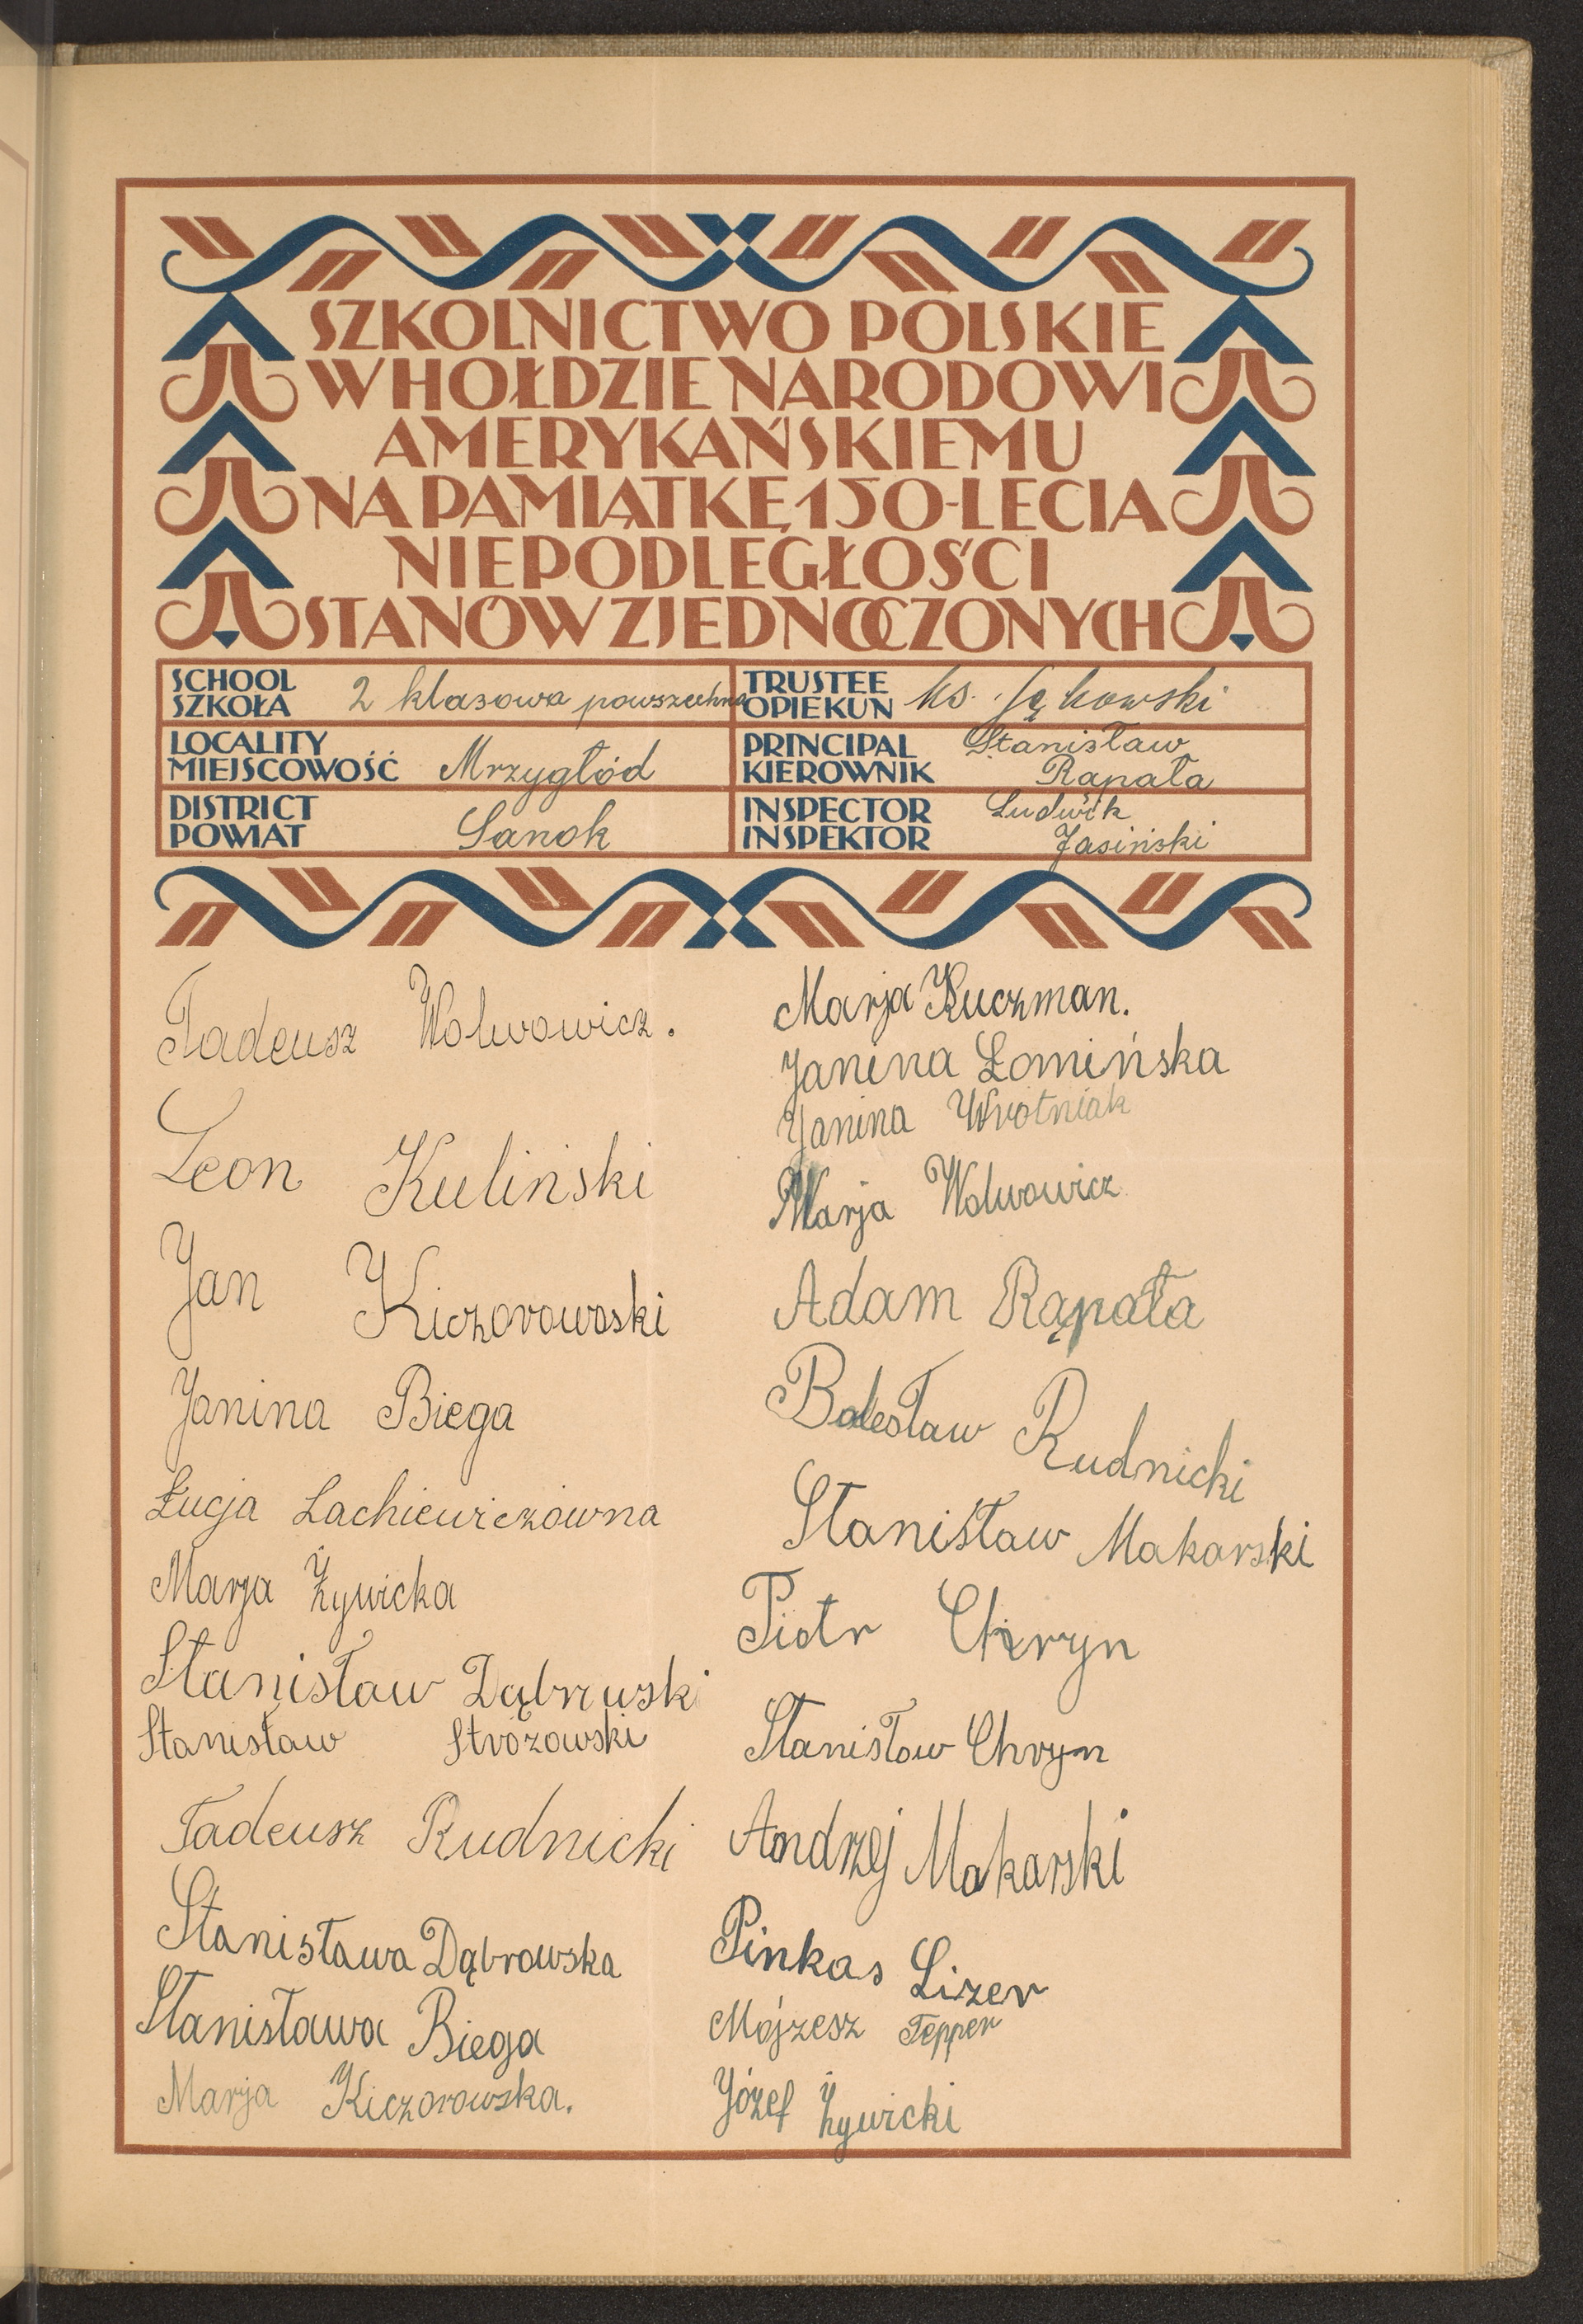 SZKOLNICTWO POLSKIE
W HOŁDZIE NARODOWI
AMERYKAŃSKIEMU
NA PAMIĄTKĘ 150-LECIA
NIEPODLEGŁOŚCI
STANÓW ZJEDNOCZONYCH
SCHOOL
SZKOŁA
2 klasowa powszechna
TRUSTEE
OPIEKUN
ks.
LOCALITY
MIEJSCOWOŚĆ
Mrzygłód
PRINCIPAL
KIEROWNIK
Stanisław
Rąpała
DISTRICT
POWIAT
Sanok
INSPECTOR
INSPEKTOR
Ludwik
Jasiński
Tadeusz Wolwowicz.
Leon Kuliński
Jan Kiczorowoski
Janina Biega
Łucja Lachiewiczówna
Marja Żywicka
Stanisław Dąbrwski
Stanisław Stróżowski
Tadeusz Rudnicki
Stanisława Dąbrowska
Stanisława Biega
Marja Kiczorowska.
Marja Kuczman.
Janina Łomińska
Janina Wrotniak
Marja Wolwowicz
Adam Rąpała
Bolesław Rudnicki
Stanisław Makarski
Piotr Chryn
Stanisław Chryn
Andrzej Makarski
Pinkas Lizer
Mojżesz Tepper
Józef Żywicki